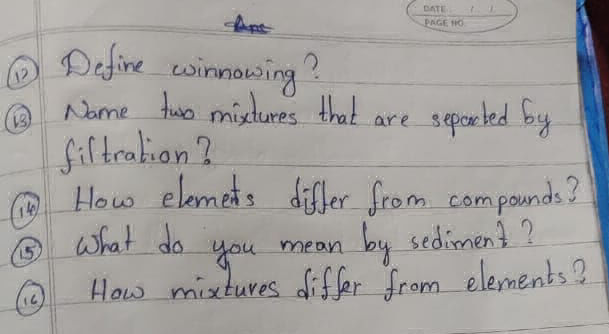 DATE / /
PAGE NO.
Ans
12 Define winnowing?
13 Name two mixtures that are seperated by
filtration?
14 How elemets differ from compounds?
15 What do you mean by sediment?
16 How mixtures differ from elements?